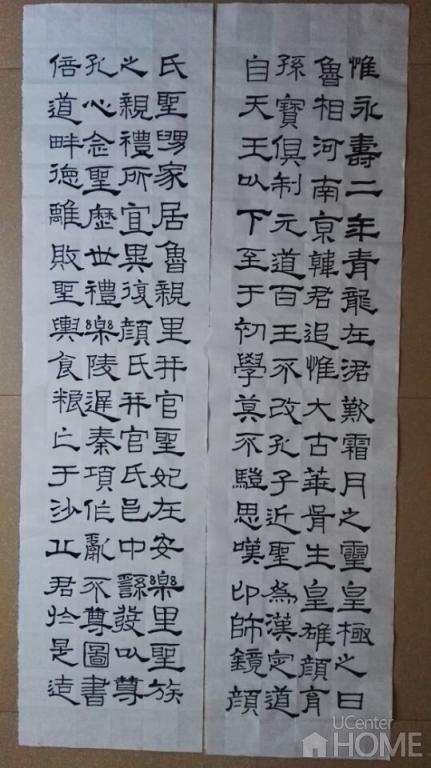 惟永壽二年青龍在涒歎霜月之靈皇極之日
魯相河南京韓君追惟大古華胥生皇雄顏育
孫寶俱制元道百王不改孔子近聖為漢定道
自天王以下至于初學莫不思嘆卬師鏡顏
氏聖舅家居魯親里并官聖妃在安樂里聖族
之親禮所宜異復顏氏并官氏邑中繇發以尊
孔心念聖歷世禮樂陵遲秦項作亂不尊圖書
倍道畔德離敗聖輿食糧亡于沙丘君於是造
UCenter
HOME